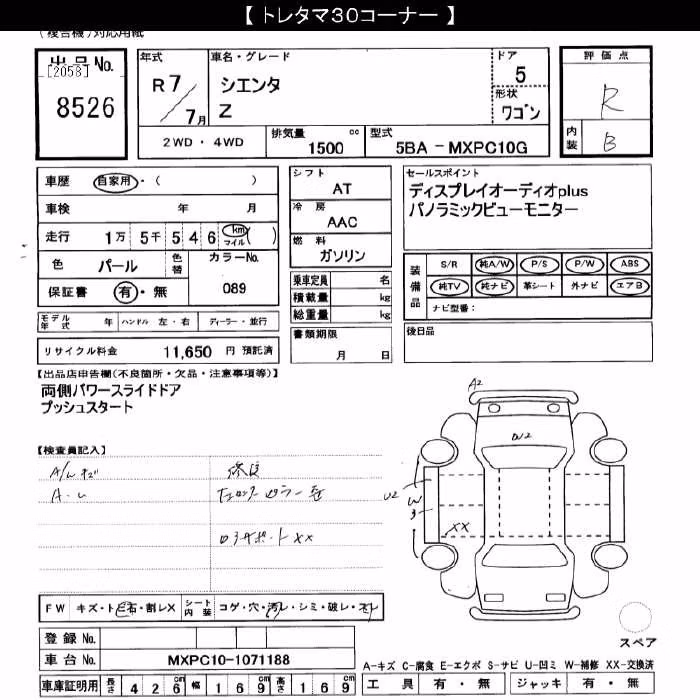 【 トレタマ30コーナー 】
(複合機)対応用紙
出品No.
[2058]
8526
年式
R7/7月
車名・グレード
シエンタ
Z
ドア
5
形状
ワゴン
評価点
R
内装
B
2WD・4WD
排気量 1500 cc
型式 5BA-MXPC10G
車歴 自家用・( )
車検 年 月
走行 1万 5千 5 4 6 km マイル ( )
色 パール
色替
カラーNo.
089
保証書 有・無
シフト
AT
冷房
AAC
燃料
ガソリン
乗車定員 名
積載量 kg
総重量 kg
書類期限
月 日
セールスポイント
ディスプレイオーディオplus
パノラミックビューモニター
装備品
S/R 純A/W P/S P/W ABS
純TV 純ナビ 革シート 外ナビ エアB
ナビ型番:
後日品
モデル年式 年 ハンドル 左・右 ディーラー・並行
リサイクル料金 11,650 円 預託済
【出品店申告欄(不良箇所・欠品・注意事項等)】
両側パワースライドドア
プッシュスタート
【検査員記入】
A/Wキズ
A・U
修復
ロアサポートXX
A2
W2
U2
W3
XX
FW キズ・ト ビ石・割レX
シート内装 コゲ・穴・汚レ・シミ・破レ・スレ
登録No.
車台No. MXPC10-1071188
車庫証明用 長さ 426 cm 幅 169 cm 高さ 169 cm
スペア
A-キズ C-腐食 E-エクボ S-サビ U-凹ミ W-補修 XX-交換済
工具 有・無 ジャッキ 有・無